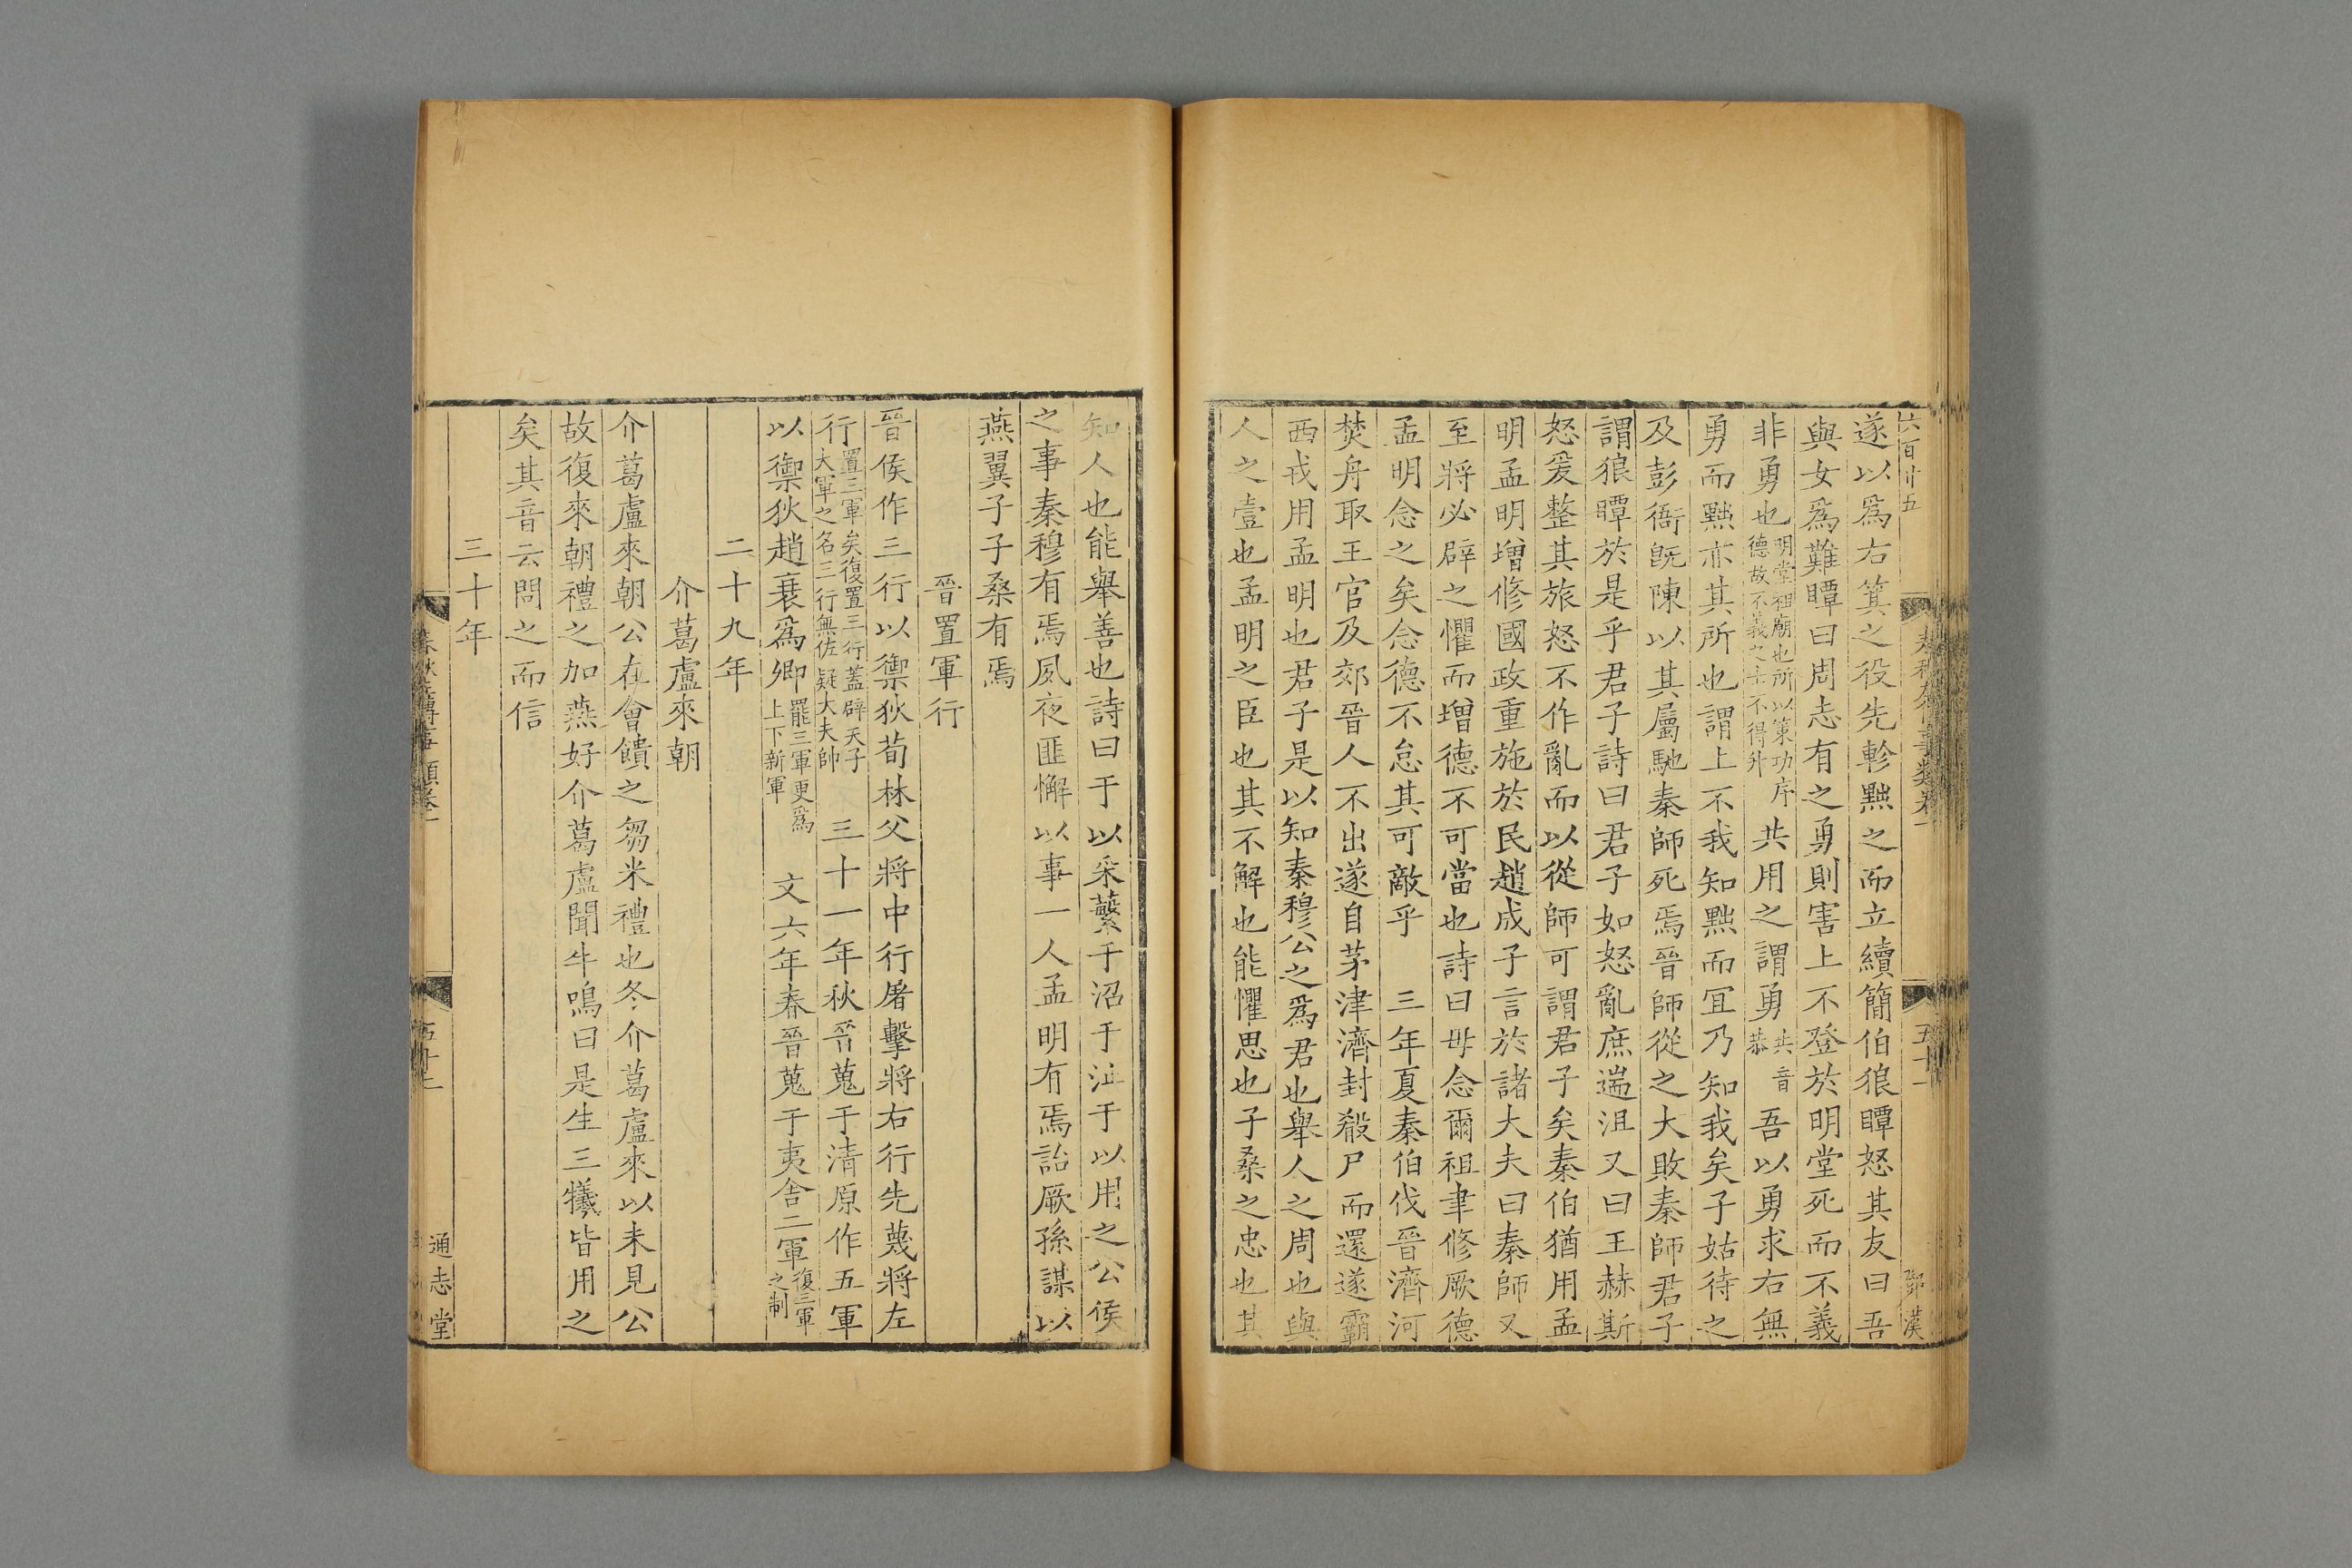 六百卅五
遂以爲右箕之役先軫黜之而立續簡伯狼瞫怒其友曰吾
與女爲難瞫曰周志有之勇則害上不登於明堂死而不義
非勇也明堂祖廟也所以策功序德故不義之士不得升共用之謂勇共音恭吾以勇求右無
勇而黜亦其所也謂上不我知黜而宜乃知我矣子姑待之
及彭衙旣陳以其屬馳秦師死焉晉師從之大敗秦師君子
謂狼瞫於是乎君子詩曰君子如怒亂庶遄沮又曰王赫斯
怒爰整其旅怒不作亂而以從師可謂君子矣秦伯猶用孟
明孟明增修國政重施於民趙成子言於諸大夫曰秦師又
至將必辟之懼而增德不可當也詩曰毋念爾祖聿修厥德
孟明念之矣念德不怠其可敵乎　三年夏秦伯伐晉濟河
焚舟取王官及郊晉人不出遂自茅津濟封殽尸而還遂霸
西戎用孟明也君子是以知秦穆公之爲君也舉人之周也與
人之壹也孟明之臣也其不解也能懼思也子桑之忠也其
知人也能舉善也詩曰于以采蘩于沼于沚于以用之公侯
之事秦穆有焉夙夜匪懈以事一人孟明有焉詒厥孫謀以
燕翼子子桑有焉
晉置軍行
晉侯作三行以禦狄荀林父將中行屠擊將右行先蔑將左
行置三軍矣復置三行蓋辟天子大軍之名三行無佐疑大夫帥　三十一年秋晉蒐于清原作五軍
以禦狄趙衰爲卿罷三軍更爲上下新軍　文六年春晉蒐于夷舍二軍復三軍之制
二十九年
介葛盧來朝
介葛盧來朝公在會饋之芻米禮也冬介葛盧來以未見公
故復來朝禮之加燕好介葛盧聞牛鳴曰是生三犧皆用之
矣其音云問之而信
三十年
通志堂